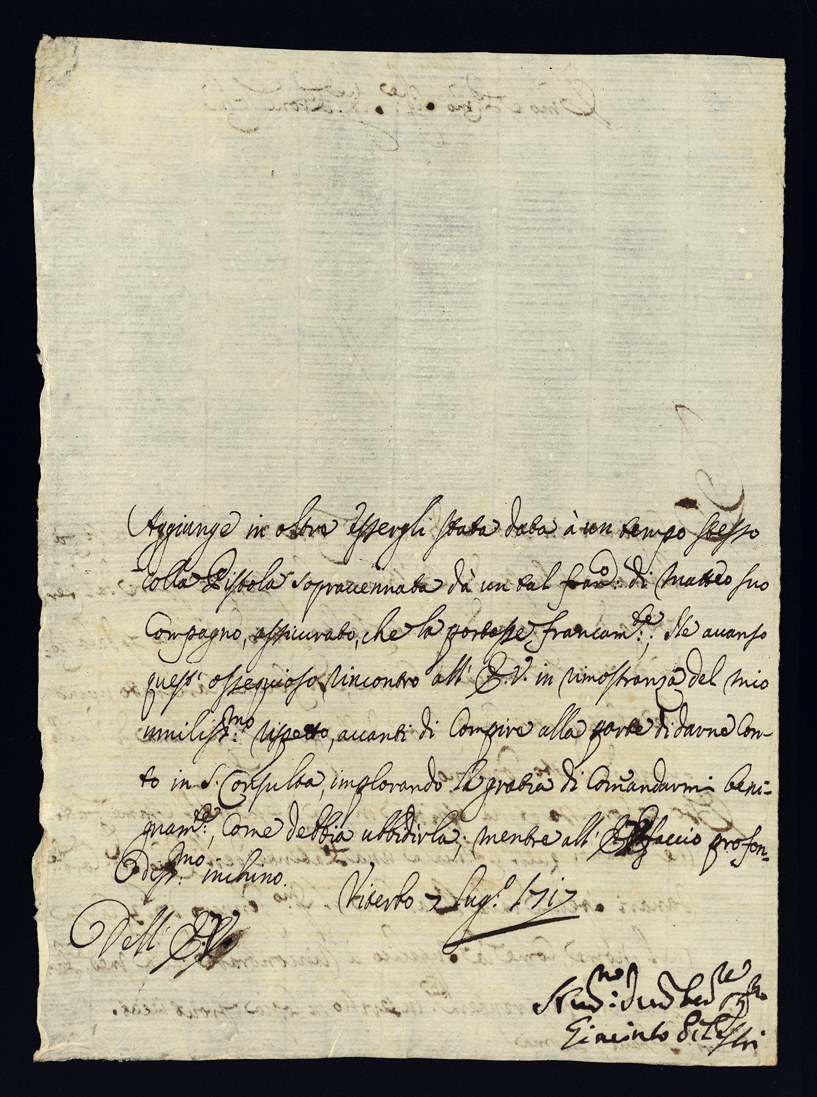 Aggiunge in oltre essergli stata data à un tempo stesso
colla Pistola sopracennata dà un tal Fran.co: di Matteo suo
Compagno, assicurato, che la portasse francam.te; Ne avanso
quest' ossequioso rincontro all' E.V. in rimostranza del mio
umiliss.mo rispetto, avanti di Compire alla parte di darne Con-
to in S. Consulta, implorando la gratia di Comandarmi beni-
gnam.te, Come debbia ubbidirla; mentre all' E.V. faccio profon-
diss.mo inchino. Viterbo 7 Lug.o 1717
Dell' E.V.
Giacinto